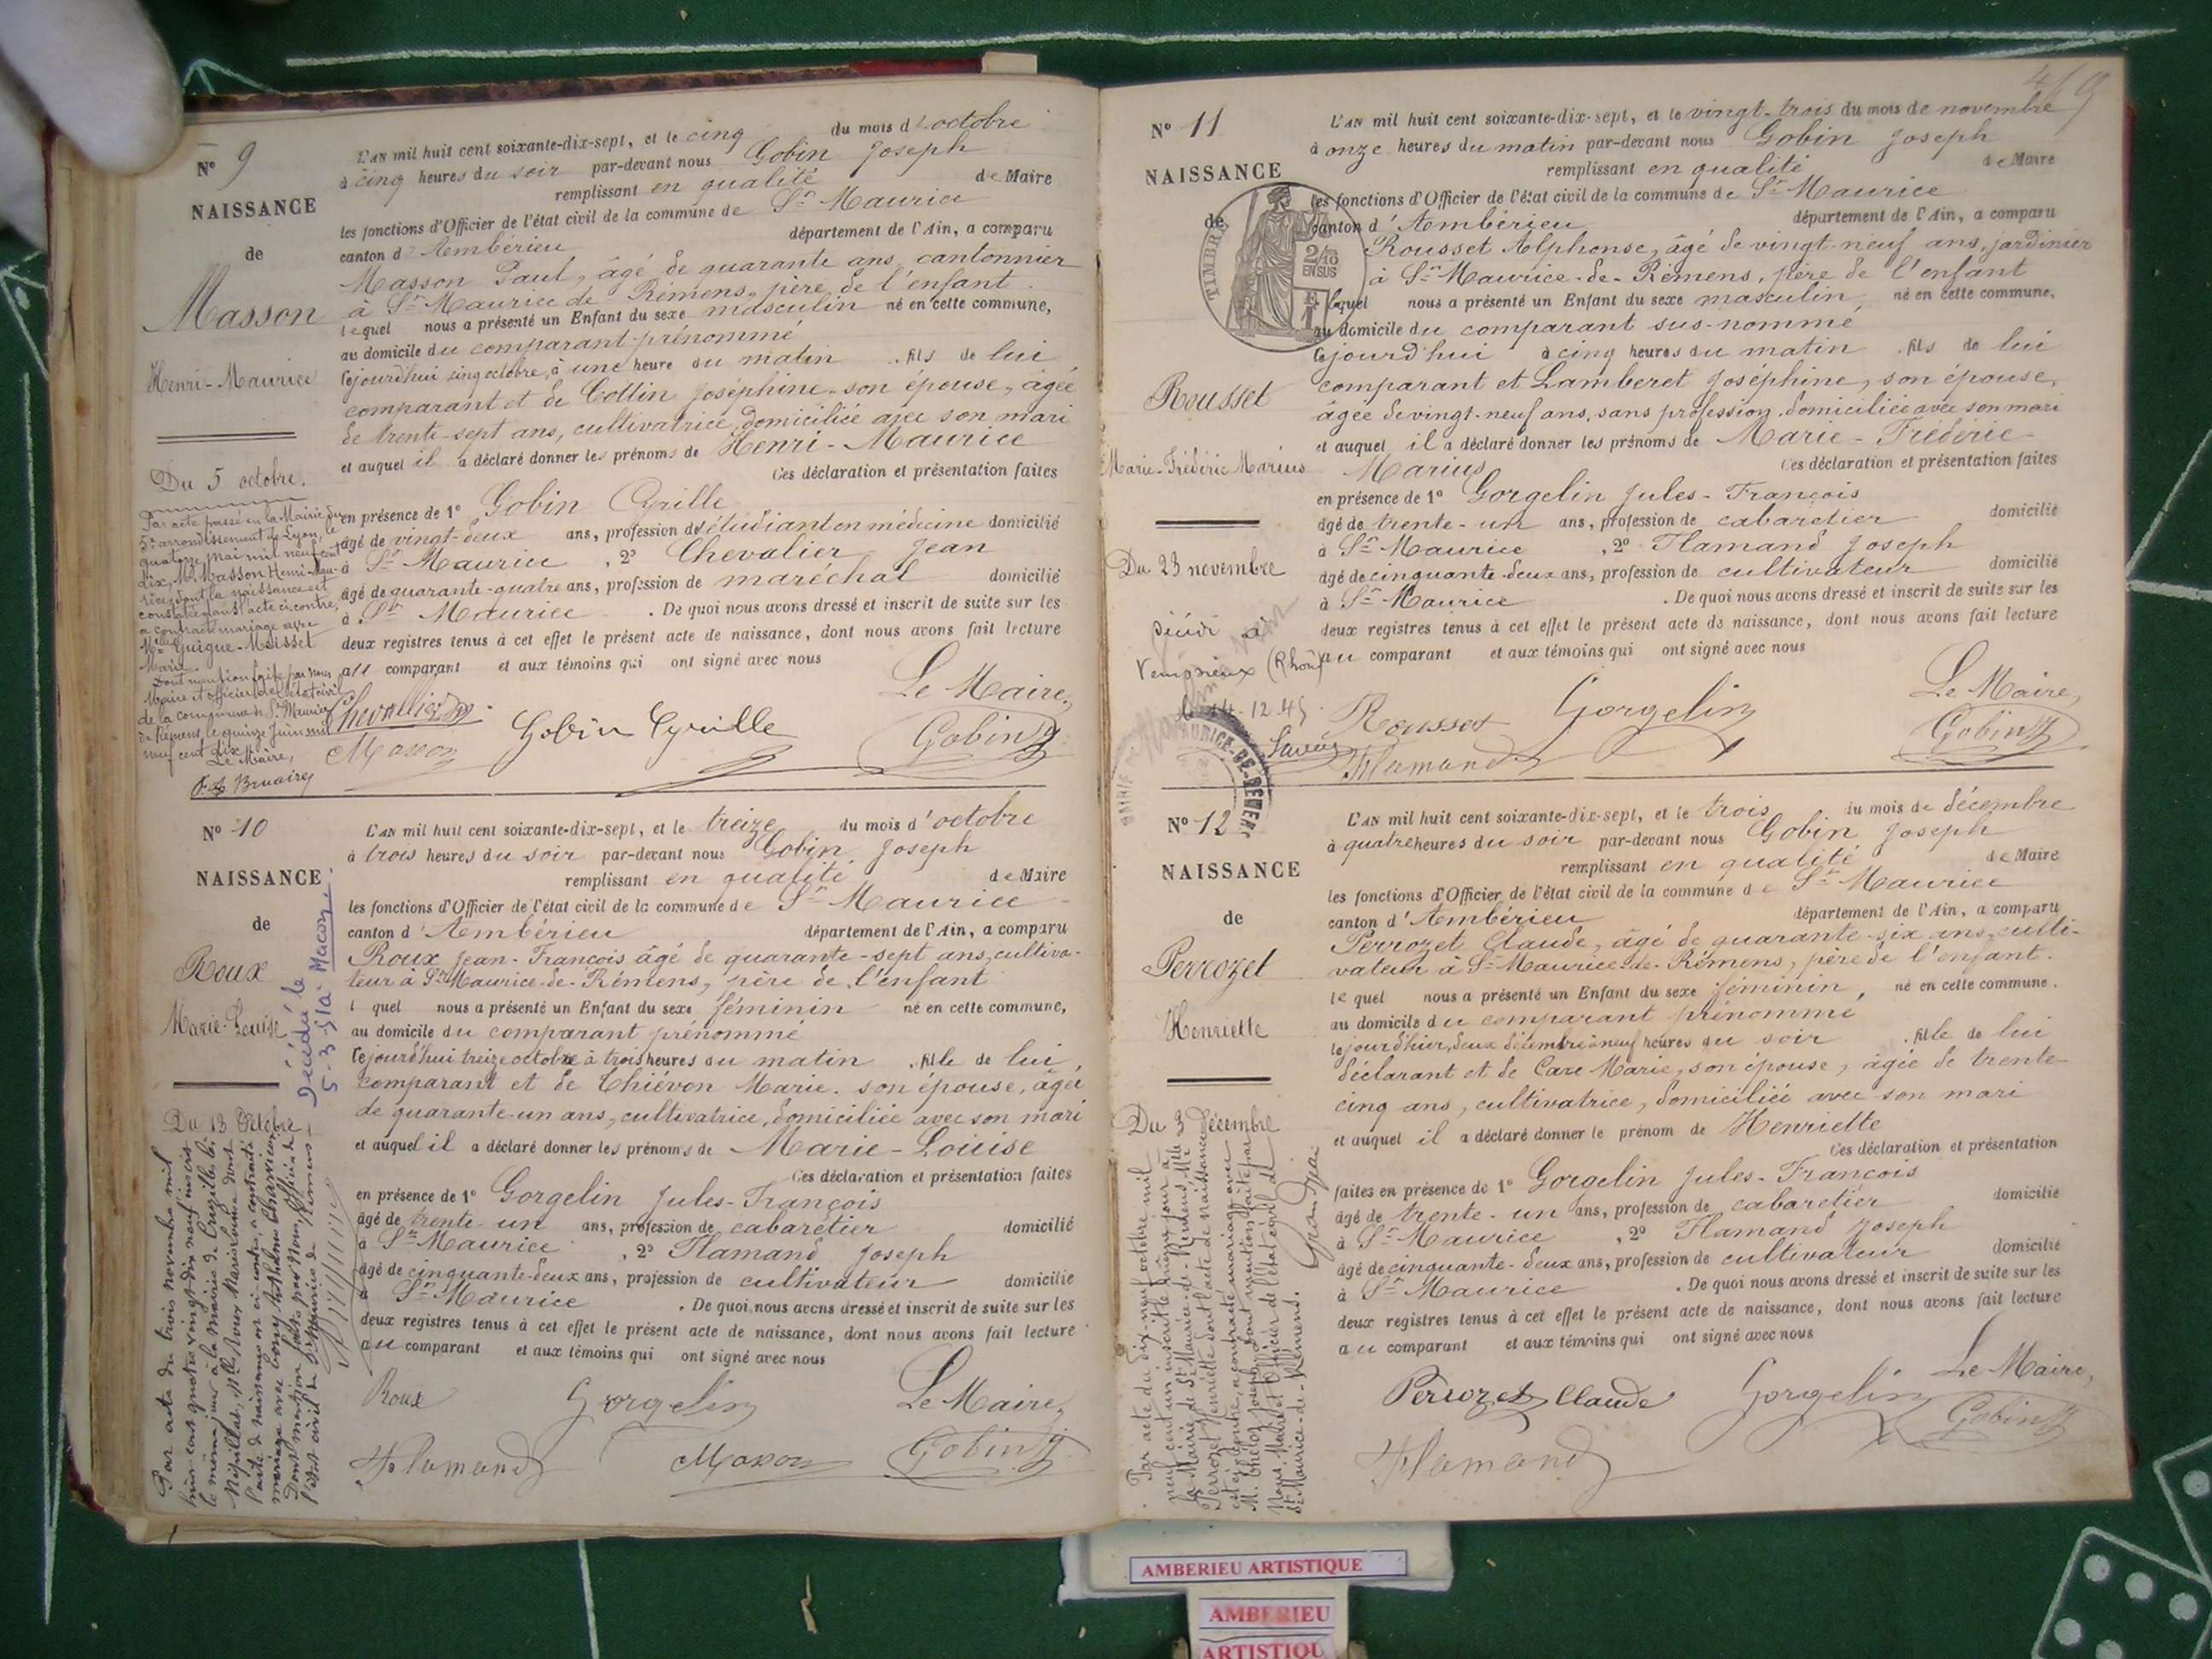 N° 9
NAISSANCE
de
Masson
Henri-Maurice
Du 5 octobre.
Par acte passé en la Mairie du
5e arrondissement de Lyon, le
quatorze mai mil neuf cent
dix, M. Masson Henri-Mau-
rice, dont la naissance est
constatée dans l'acte ci-contre,
a contracté mariage avec
Guigue-Moisset
Marie.
Dont mention faite par nous
Maire et officier de l'état civil
de la commune de St Maurice
de Rémens, le quinze juin mil
neuf cent dix
Le Maire,
Bruaire
L'AN mil huit cent soixante-dix-sept, et le cinq du mois d'octobre
à cinq heures du soir par-devant nous Gobin Joseph
remplissant en qualité de Maire
les fonctions d'Officier de l'état civil de la commune de St Maurice
canton d'Ambérieu département de l'Ain, a comparu
Masson Paul, âgé de quarante ans, cantonnier
à St Maurice de Rémens, père de l'enfant.
lequel nous a présenté un Enfant du sexe masculin né en cette commune,
au domicile du comparant prénommé
cejourd'hui cinq octobre, à une heure du matin . fils de lui
comparant et de Collin Joséphine, son épouse, âgée
de trente-sept ans, cultivatrice, domiciliée avec son mari
et auquel il a déclaré donner les prénoms de Henri-Maurice
Ces déclaration et présentation faites
en présence de 1° Gobin Cyrille
âgé de vingt-deux ans, profession d'étudiant en médecine domicilié
à St Maurice , 2° Chevalier Jean
âgé de quarante-quatre ans, profession de maréchal domicilié
à St Maurice . De quoi nous avons dressé et inscrit de suite sur les
deux registres tenus à cet effet le présent acte de naissance, dont nous avons fait lecture
au comparant et aux témoins qui ont signé avec nous
Le Maire,
Chevallier
Masson Gobin Cyrille Gobin J
N° 10
NAISSANCE
de
Roux
Marie-Louise
Décédée le
5-3-51 à Macon
Du 13 Octobre
Par acte du trois novembre mil
huit cent quatre vingt dix neuf inscrit
le même jour à la mairie de
Melle Roux Marie Louise dont
l'acte de naissance est ci contre, a contracté
mariage avec Anthelme
Dont mention faite par Nous, officier de
l'état civil de St Maurice de Rémens
L'AN mil huit cent soixante-dix-sept, et le treize du mois d'octobre
à trois heures du soir par-devant nous Gobin Joseph
remplissant en qualité de Maire
les fonctions d'Officier de l'état civil de la commune de St Maurice
canton d'Ambérieu département de l'Ain, a comparu
Roux Jean-François âgé de quarante-sept ans, cultiva-
teur à St Maurice-de-Rémens, père de l'enfant
l quel nous a présenté un Enfant du sexe féminin né en cette commune,
au domicile du comparant prénommé
cejourd'hui treize octobre à trois heures du matin . fille de lui
comparant et de Chiévon Marie, son épouse, âgée
de quarante-un ans, cultivatrice, domiciliée avec son mari
et auquel il a déclaré donner les prénoms de Marie-Louise
Ces déclaration et présentation faites
en présence de 1° Gorgelin Jules-François
âgé de trente-un ans, profession de cabaretier domicilié
à St Maurice , 2° Flamand Joseph
âgé de cinquante-deux ans, profession de cultivateur domicilié
à St Maurice . De quoi nous avons dressé et inscrit de suite sur les
deux registres tenus à cet effet le présent acte de naissance, dont nous avons fait lecture
au comparant et aux témoins qui ont signé avec nous
Roux Gorgelin Le Maire,
Flamand Masson Gobin J
N° 11
NAISSANCE
de
TIMBRE
2/10
EN SUS
Rousset
Marie-Frédéric Marius
Du 23 novembre
(Rhône)
14-12-45
L'AN mil huit cent soixante-dix-sept, et le vingt-trois du mois de novembre
à onze heures du matin par-devant nous Gobin Joseph
remplissant en qualité de Maire
les fonctions d'Officier de l'état civil de la commune de St Maurice
canton d'Ambérieu département de l'Ain, a comparu
Rousset Alphonse, âgé de vingt-neuf ans, jardinier
à St Maurice-de-Rémens, père de l'enfant
lequel nous a présenté un Enfant du sexe masculin né en cette commune,
au domicile du comparant sus-nommé
cejourd'hui à cinq heures du matin . fils de lui
comparant et Lamberet Joséphine, son épouse,
âgée de vingt-neuf ans, sans profession, domiciliée avec son mari
et auquel il a déclaré donner les prénoms de Marie-Frédéric
Marius Ces déclaration et présentation faites
en présence de 1° Gorgelin Jules-François
âgé de trente-un ans, profession de cabaretier domicilié
à St Maurice , 2° Flamand Joseph
âgé de cinquante-deux ans, profession de cultivateur domicilié
à St Maurice . De quoi nous avons dressé et inscrit de suite sur les
deux registres tenus à cet effet le présent acte de naissance, dont nous avons fait lecture
au comparant et aux témoins qui ont signé avec nous
Le Maire,
Rousset Gorgelin Gobin J
Flamand
N° 12
NAISSANCE
de
Perrozet
Henriette
Du 3 Décembre
Par acte du dix-neuf octobre mil
neuf cent un inscrit le même jour à
la Mairie de St Maurice-de-Rémens, Melle
Perrozet Henriette dont l'acte de naissance
est ci-contre, a contracté mariage avec
M. Joseph, dont mention faite par
Nous, Maire et Officier de l'état civil de
St Maurice-de-Rémens.
L'AN mil huit cent soixante-dix-sept, et le trois du mois de décembre
à quatre heures du soir par-devant nous Gobin Joseph
remplissant en qualité de Maire
les fonctions d'Officier de l'état civil de la commune de St Maurice
canton d'Ambérieu département de l'Ain, a comparu
Perrozet Claude, âgé de quarante-six ans, culti-
vateur à St Maurice-de-Rémens, père de l'enfant.
lequel nous a présenté un Enfant du sexe féminin, né en cette commune.
au domicile du comparant prénommé
le jour d'hier, deux décembre à neuf heures du soir . fille de lui
déclarant et de Care Marie, son épouse, âgée de trente-
cinq ans, cultivatrice, domiciliée avec son mari
et auquel il a déclaré donner le prénom de Henriette
Ces déclaration et présentation
faites en présence de 1° Gorgelin Jules-François
âgé de trente-un ans, profession de cabaretier domicilié
à St Maurice , 2° Flamand Joseph
âgé de cinquante-deux ans, profession de cultivateur domicilié
à St Maurice . De quoi nous avons dressé et inscrit de suite sur les
deux registres tenus à cet effet le présent acte de naissance, dont nous avons fait lecture
au comparant et aux témoins qui ont signé avec nous
Le Maire,
Perrozet Claude Gorgelin Gobin J
Flamand
AMBERIEU ARTISTIQUE
AMBERIEU
ARTISTIQU